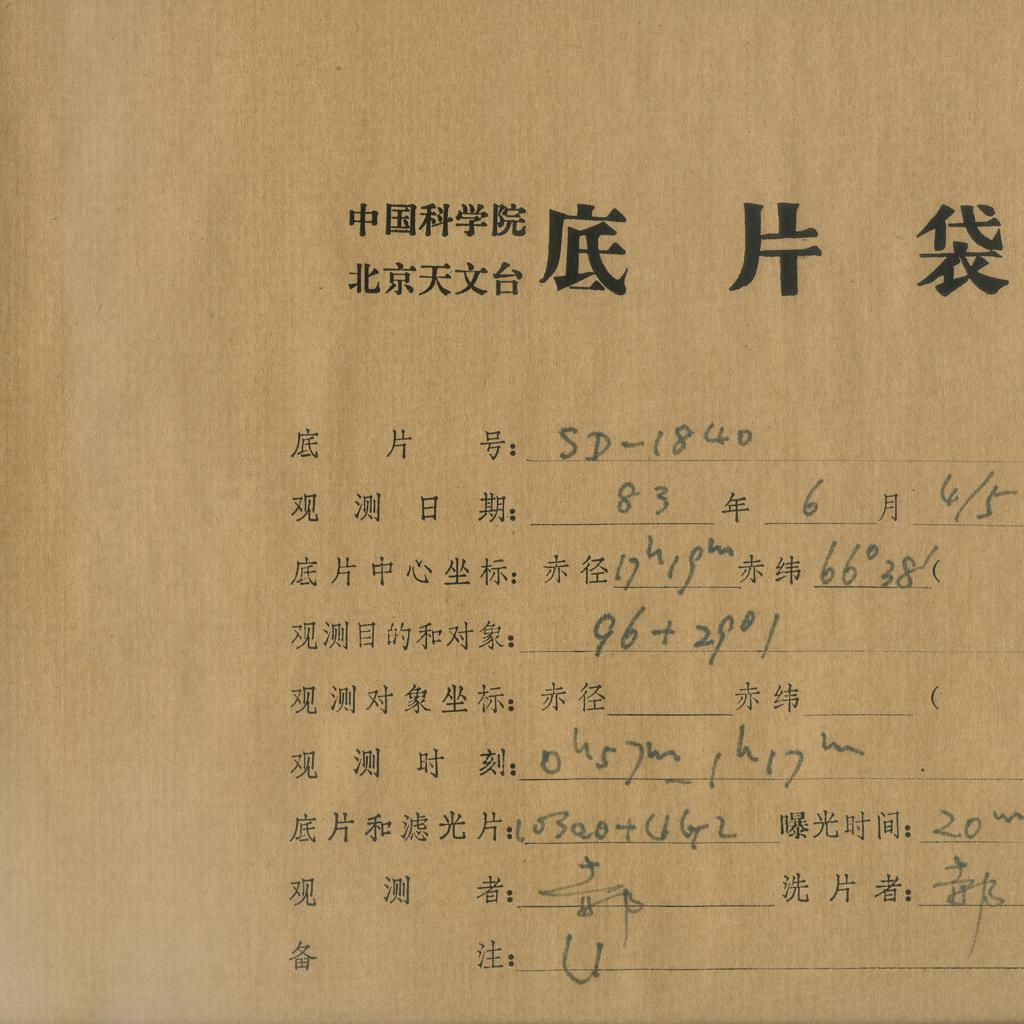 中国科学院
北京天文台
底片袋
底片号: SD-1840
观测日期: 83年6月4/5
底片中心坐标: 赤径17ʰ19ᵐ赤纬66°38′(
观测目的和对象: 96+2901
观测对象坐标: 赤径 赤纬 (
观测时刻: 0ʰ57ᵐ-1ʰ17ᵐ
底片和滤光片: 103a0+UG2 曝光时间: 20ᵐ
观测者: 洗片者:
备注: U